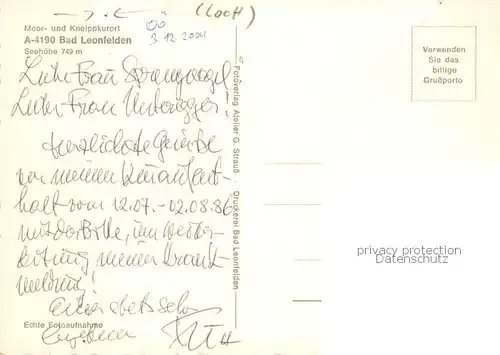 (LOCH)
OÖ
3.12.2004
Moor- und Kneippkurort
A-4190 Bad Leonfelden
Seehöhe 749 m
Liebe Frau
Liebe Frau
herzlichste Grüße
von meinem Kuraufent-
halt vom 12.07.-02.08.86
mit der Bitte, um Weiter-
leitung meiner Krank-
meldung!
Echte Fotoaufnahme
Fotoverlag Atelier G. Strauß · Druckerei Bad Leonfelden
Verwenden
Sie das
billige
Grußporto
privacy protection
Datenschutz